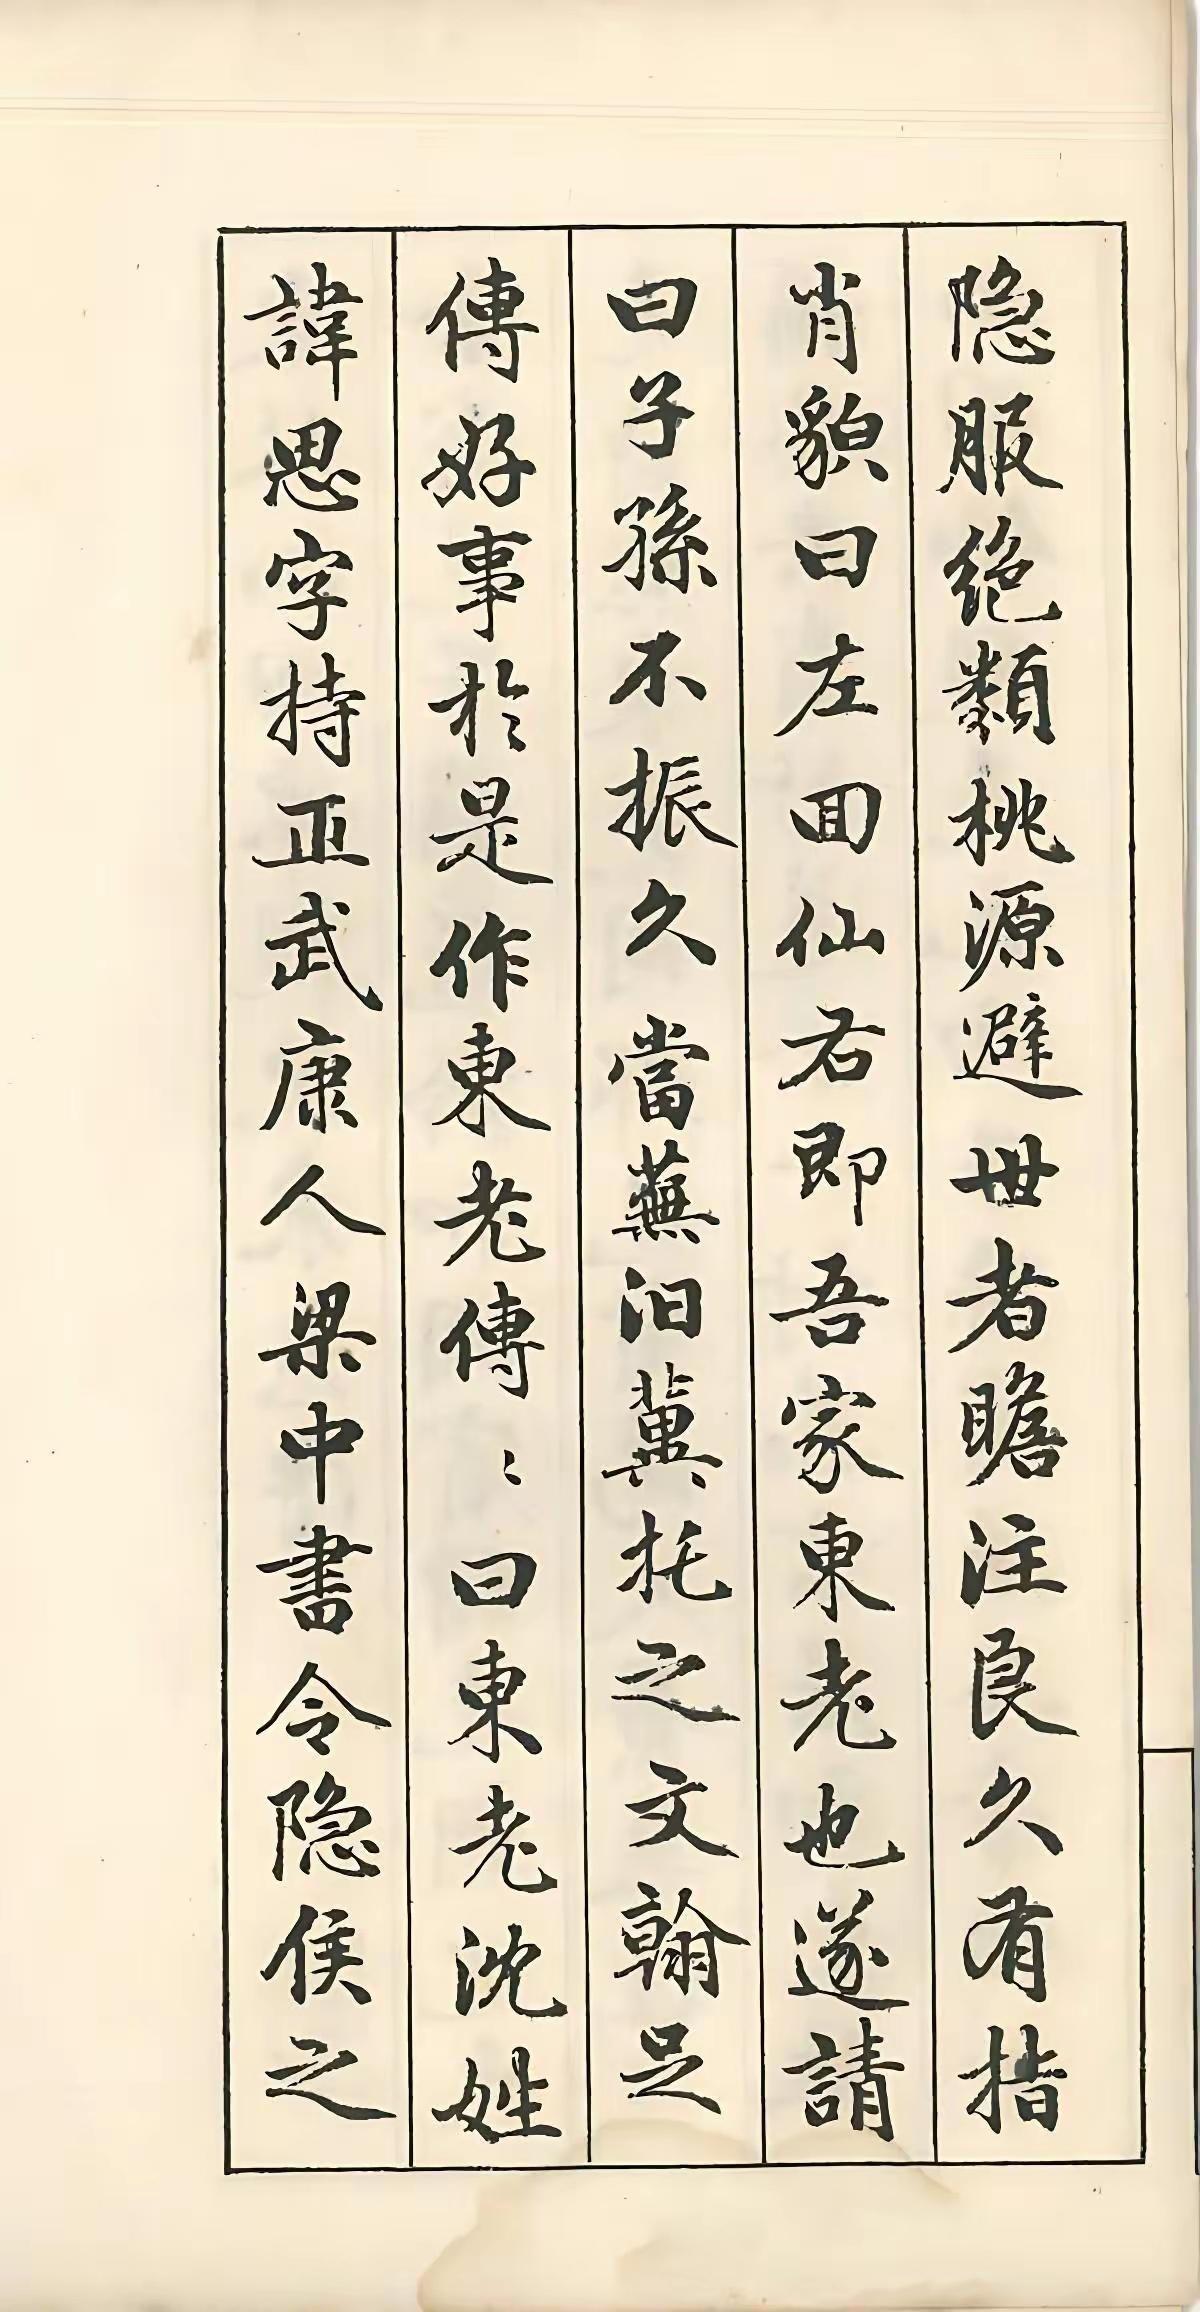 隐服绝類桃源避世者瞻注良久有指
肖貌曰左回仙右即吾家東老也遂請
曰子孫不振久當蕪汩冀托之文翰足
傳好事於是作東老傳〻曰東老沈姓
諱思字持正武康人梁中書令隐侯之